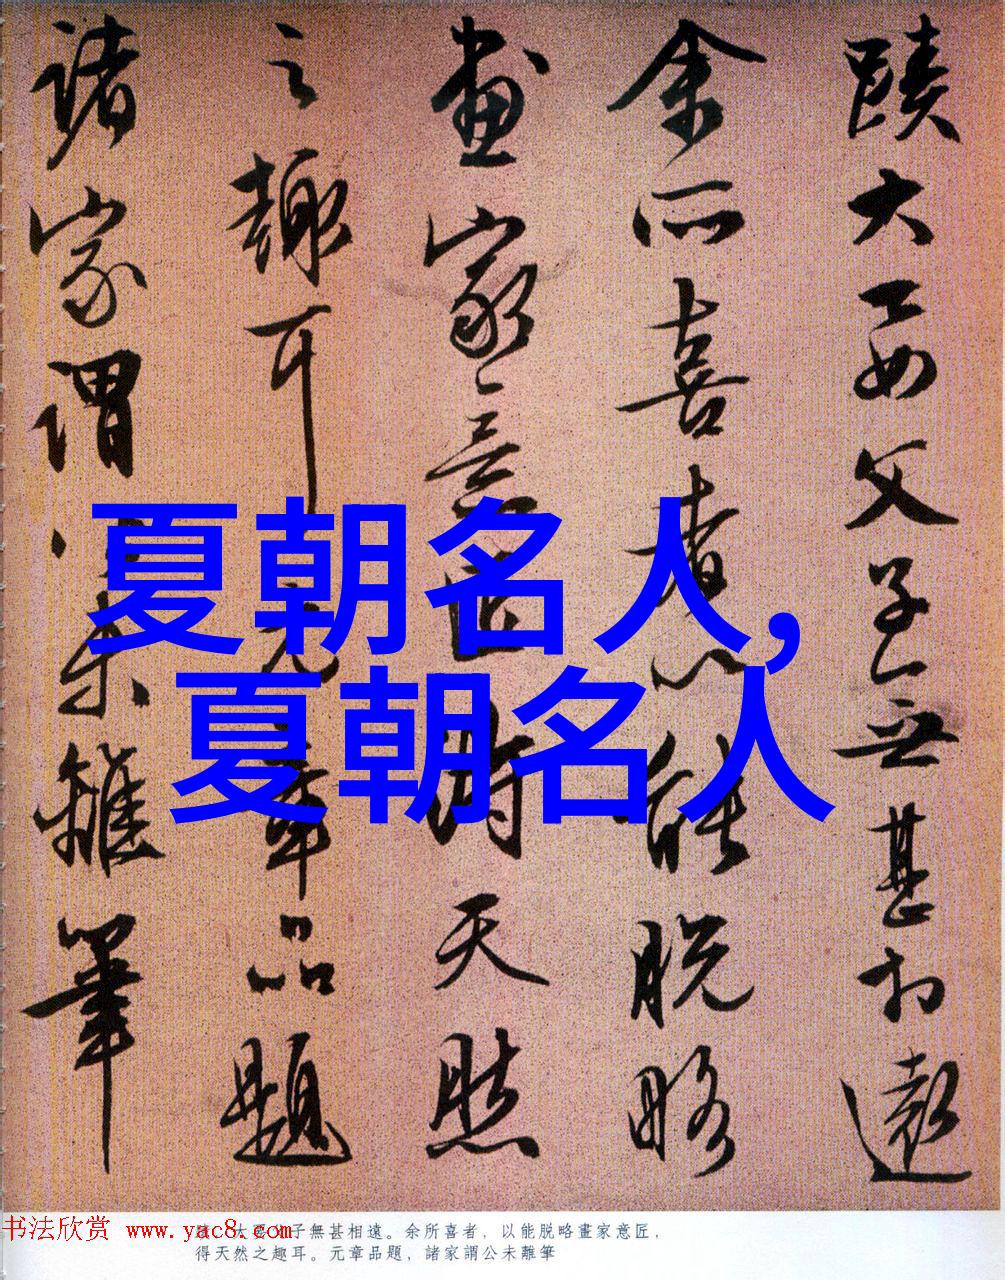 蹟大要父子無甚相遠
余所喜者以能脱略
畫家意匠得天然
之趣耳元章品題
諸家謂公未離筆
夏朝名人,
夏朝名人
书法欣赏 www.yac8.com
蹟,大要父子無甚相遠。余所喜者,以能脱略畫家意匠,
得天然之趣耳。元章品題,諸家謂公未離筆